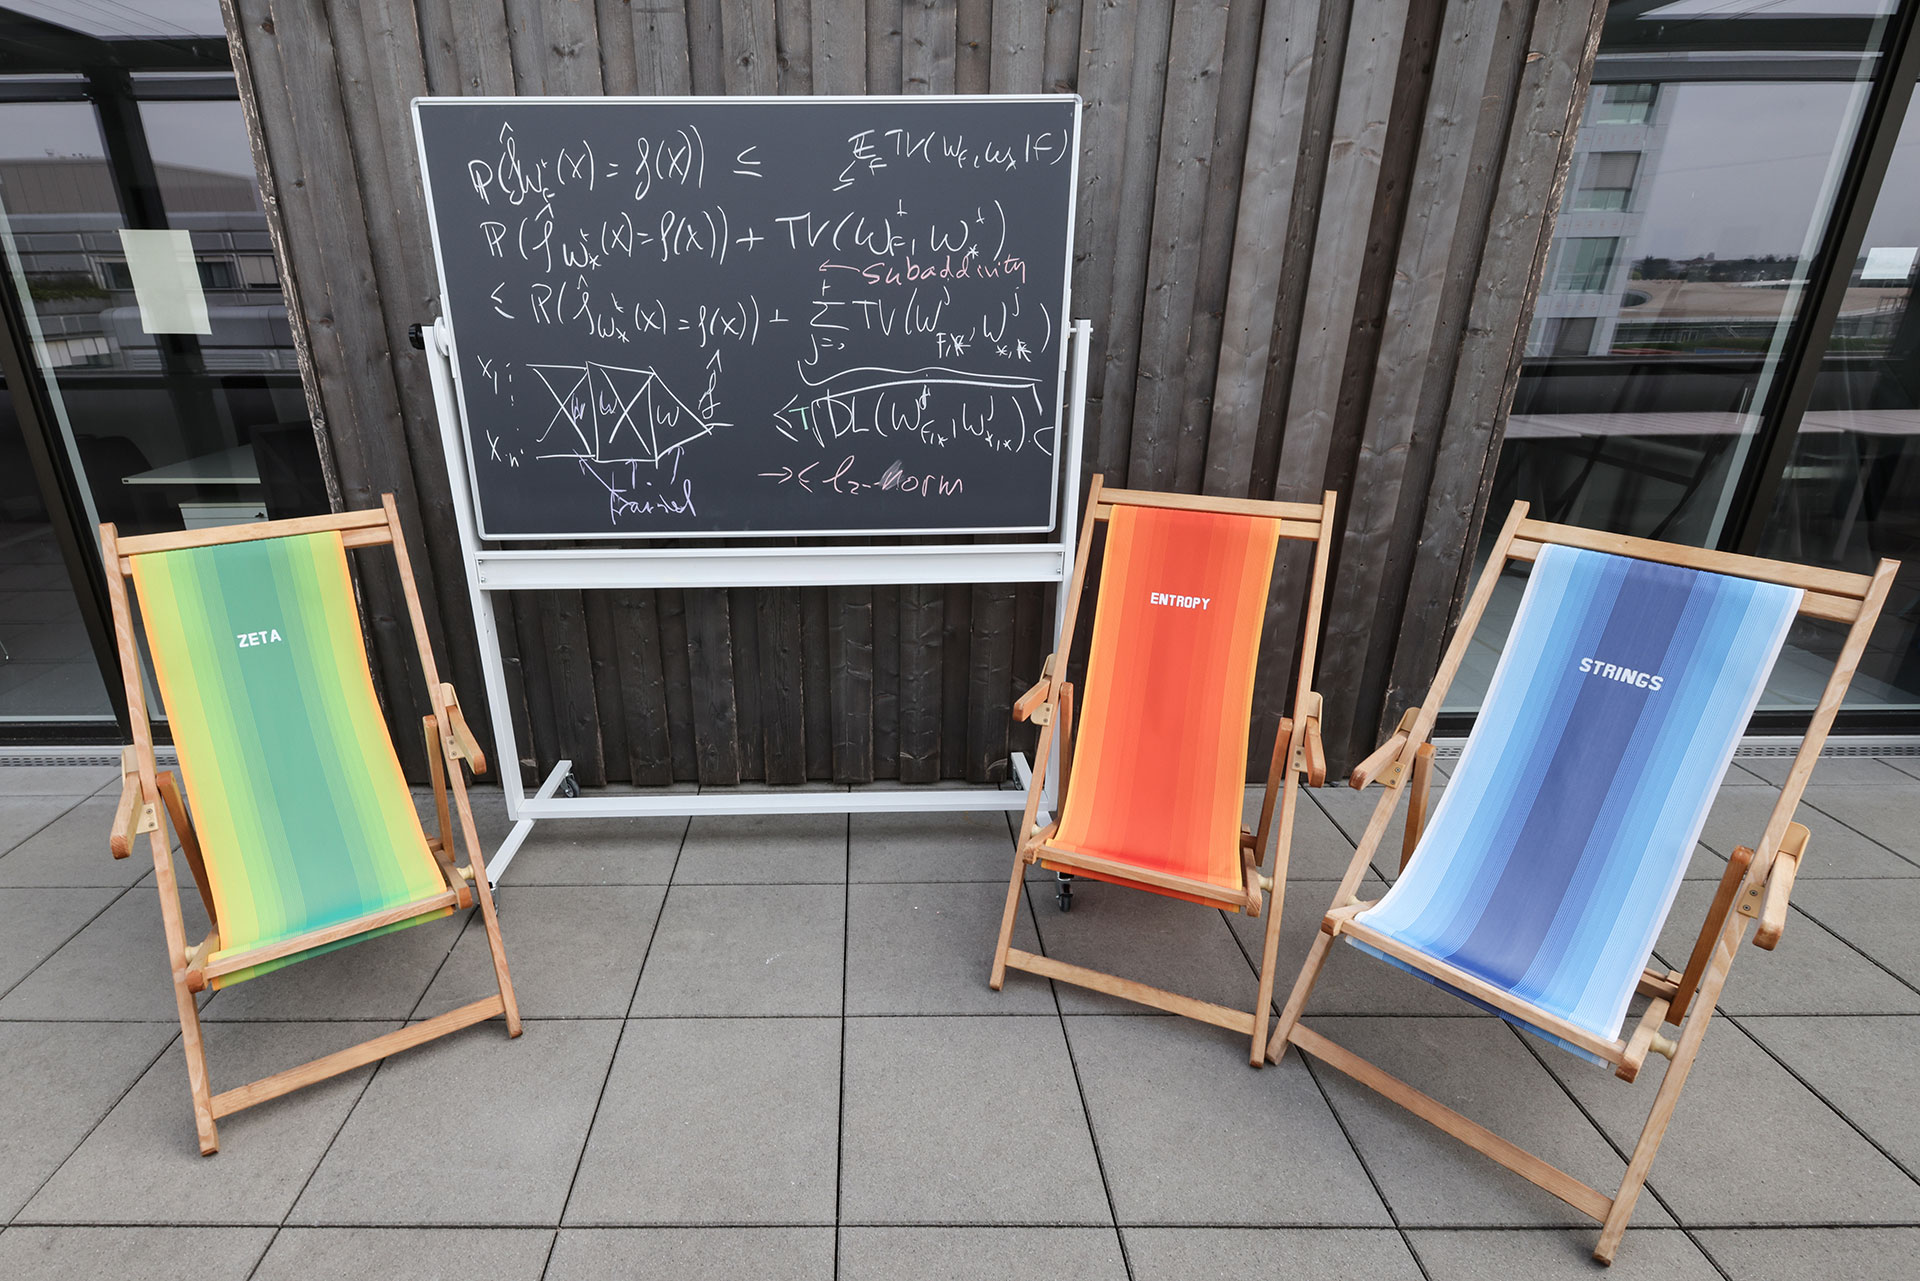 P(f̂_{W_F^t}(X) = f(X)) ≤ ≤ E_F TV(W_F, W_* | F)
P(f̂_{W_*^t}(X) = f(X)) + TV(W_F^t, W_*^t)
← subaddivity
≤ P(f̂_{W_*^t}(X) = f(X)) + Σ_{j=1}^t TV(W^j, W^j)
X_1 W W f̂
X_n
≤ T √DL(W^j, W^j) · C
→ ≤ l_2-norm
ZETA
ENTROPY
STRINGS